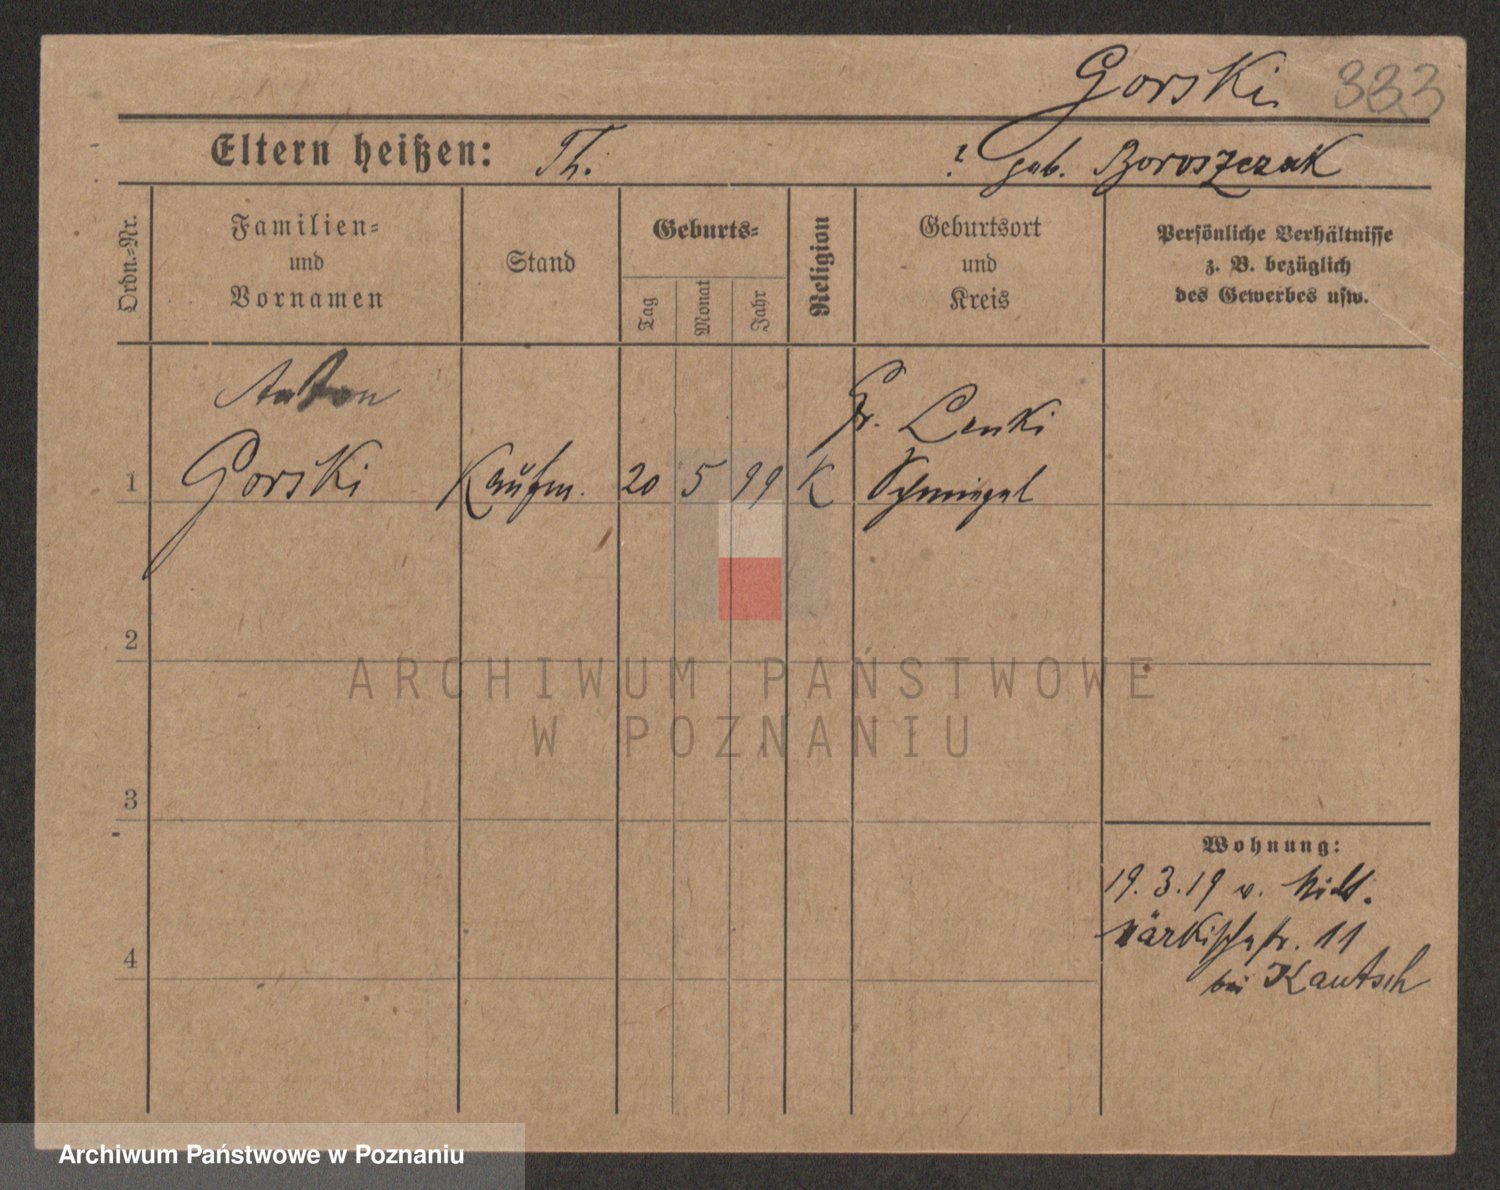 Gorski 333
Eltern heißen: Th. ? geb. Boroszczak
Ordn.-Nr.
Familien-
und
Vornamen
Stand
Geburts-
Tag
Monat
Jahr
Religion
Geburtsort
und
Kreis
Persönliche Verhältnisse
z. B. bezüglich
des Gewerbes usw.
Anton
Gr. Lenki
1 Gorski Kaufm. 20 5 99 K Schmiegel
2
ARCHIWUM PAŃSTWOWE
W POZNANIU
3
Wohnung:
19.3.19 v. Milt.
märkischestr. 11
4
bei Kautsch
Archiwum Państwowe w Poznaniu